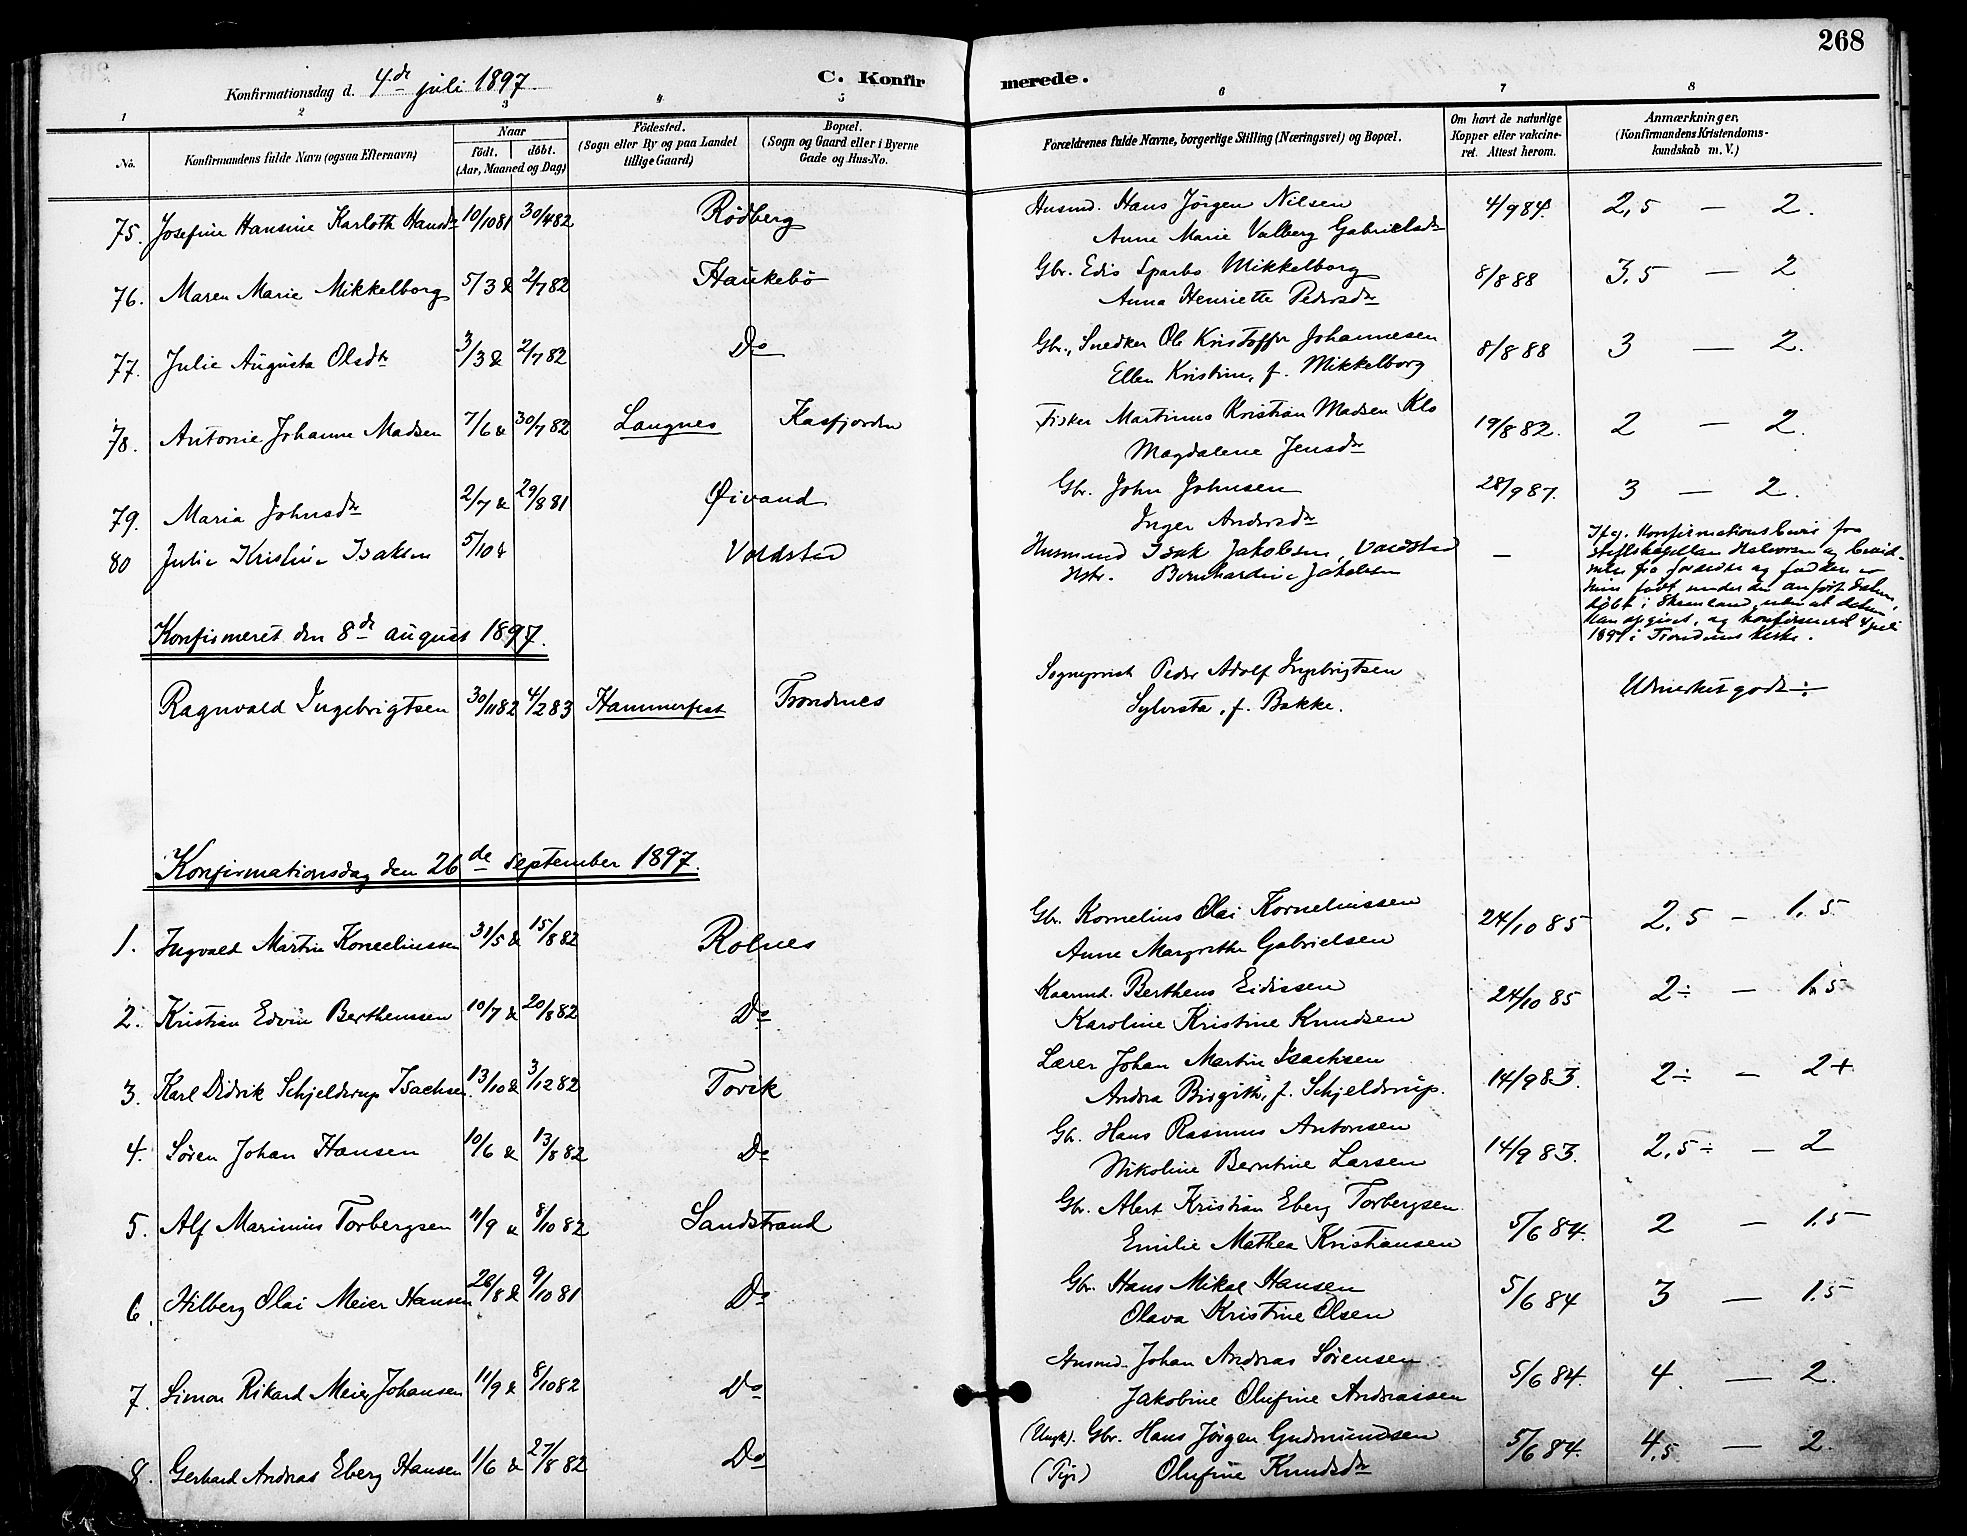 268
Konfirmationsdag d. 4de juli 1897.
C. Konfirmerede.
1 2 3 4 5 6 7 8
No.
Konfirmandens fulde Navn (ogsaa Efternavn)
Naar
født, døbt.
(Aar, Maaned og Dag)
Fødested.
(Sogn eller By og paa Landet
tillige Gaard)
Bopæl.
(Sogn og Gaard eller i Byerne
Gade og Hus-No.
Forældrenes fulde Navne, borgerlige Stilling (Næringsvei) og Bopæl.
Om havt de naturlige
Kopper eller vakcine-
ret. Attest herom.
Anmærkninger.
(Konfirmandens Kristendoms-
kundskab m. V.)
75. Josefine Hansine Karloth Hansdr 10/1081 30/482 Rödberg Husmd. Hans Jörgen Nilsen 4/984. 2,5 — 2.
Anne Marie Valberg Gabrielsdr
76. Maren Marie Mikkelborg 5/3 & 2/782 Haukebö Gbr. Edis Sparbo Mikkelborg 8/888 3,5 — 2
Anna Henriette Pedersdr
77. Julie Augusta Olsdtr 3/3 & 2/782 Do Gbr., Snedker Ole Kristoffer Johannesen 8/888 3 — 2.
Ellen Kristine, f. Mikkelborg
78. Antonie Johanne Madsen 7/6 & 30/782 Langnes Kasfjorden Fisker Martinus Kristian Madsen Klo 19/882. 2 — 2.
Magdalene Jensdr
79. Maria Johnsdr 2/7 & 29/881 Øivand Gbr. John Johnsen 28/987. 3 — 2.
Inger Andersdr
80 Julie Kristine Isaksen 5/10 & Voldstad Husmand Isak Jakobsen, Voldstad —
Hstr. Bernhardine Jakobsen
Ifg. Konfirmationsbevis fra
stiftskapellan Halvorsen og bevid-
nelse fra forældre og faddere er
hun født under den anført Datum,
døbt i Skaanland, uden at datum
kan opgives, og konfirmeret 4 juli
1897 i Trondenes Kirke.
Konfirmeret den 8de august 1897.
Ragnvald Ingebrigtsen 30/1182 4/283 Hammerfest Trondenes Sogneprest Peder Adolf Ingebrigtsen Udmerket godt ÷
Sylvesta, f. Bakke.
Konfirmationsdag den 26de september 1897.
1. Ingvald Martin Korneliussen 31/5 & 15/882 Rolnes Gbr. Kornelius Olai Korneliussen 24/1085 2,5 — 1,5
Anne Margrethe Gabrielsen
2. Kristian Edvin Bertheussen 10/7 & 20/882 Do Kaarmd. Bertheus Eidissen 24/1085 2÷ — 1,5
Karoline Kristine Knudsen
3. Karl Didrik Schjelderup Isachsen. 13/10 & 3/1282 Torik Lærer Johan Martin Isachsen 14/983. 2÷ — 2+
Andrea Birgithe, f. Schjelderup.
4. Sören Johan Hansen 10/6 & 13/882 Do Gbr. Hans Rasmus Antonsen 14/983. 2,5÷ — 2
Nikoline Berntine Larsen
5. Alf Marinius Torbergsen 11/9 & 8/1082 Sandstrand Gbr. Albert Kristian Eberg Torbergsen 5/684. 2 — 1,5
Emilie Mathea Kristiansen
6. Hilberg Olai Meier Hansen 28/8 & 9/1081 Do Gbr. Hans Mikal Hansen 5/684 3 — 1,5
Olava Kristine Olsen
7. Simon Rikard Meier Johansen 11/9 & 8/1082 Do Husmd. Johan Andreas Sörensen 5/684. 4. — 2.
Jakobine Olufine Andreassen
8. Gerhard Andreas Eberg Hansen 1/6 & 27/882 Do (Ungk). Gbr. Hans Jörgen Gudmundsen 5/684. 4,5 — 2.
(Pige) Olufine Knudsdr